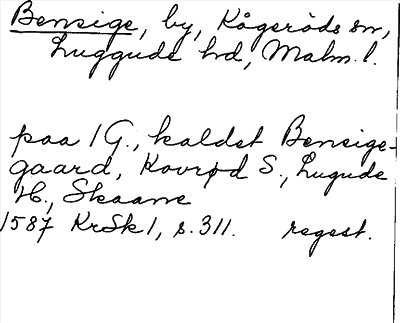 Bensige, by, Kågeröds sn,
Luggude hd, Malm. l.
paa 1 G., kaldet Bensige-
gaard, Kovrød S., Lugude
H., Skaane
1587 KrSk 1, s. 311. regest.